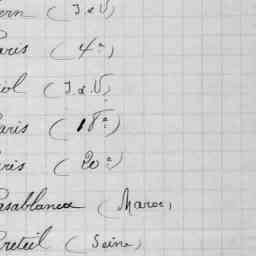 ern (I.&V)
aris (4ᵉ)
iol (I.&V.)
aris (18ᵉ)
ris (20ᵉ)
asablanca (Maroc)
reteil (Seine)